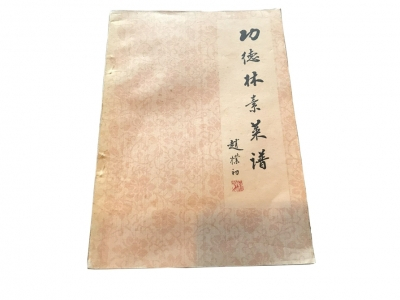 功德林素菜谱
赵樸初